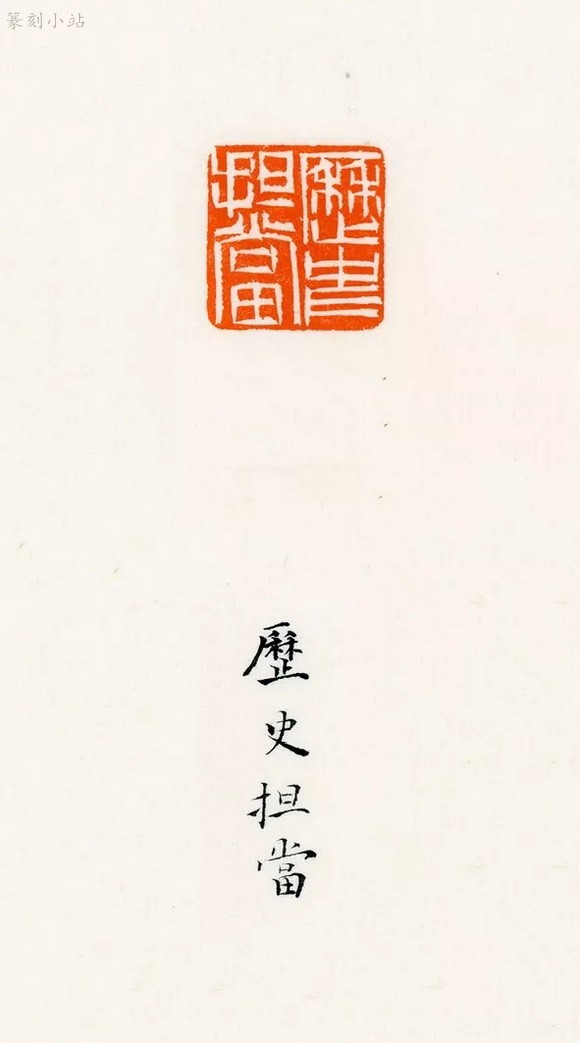 篆刻小站
歷史
担當
歷史担當